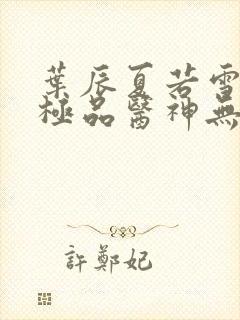 葉辰夏若雪
極品醫神無
許鄭妃